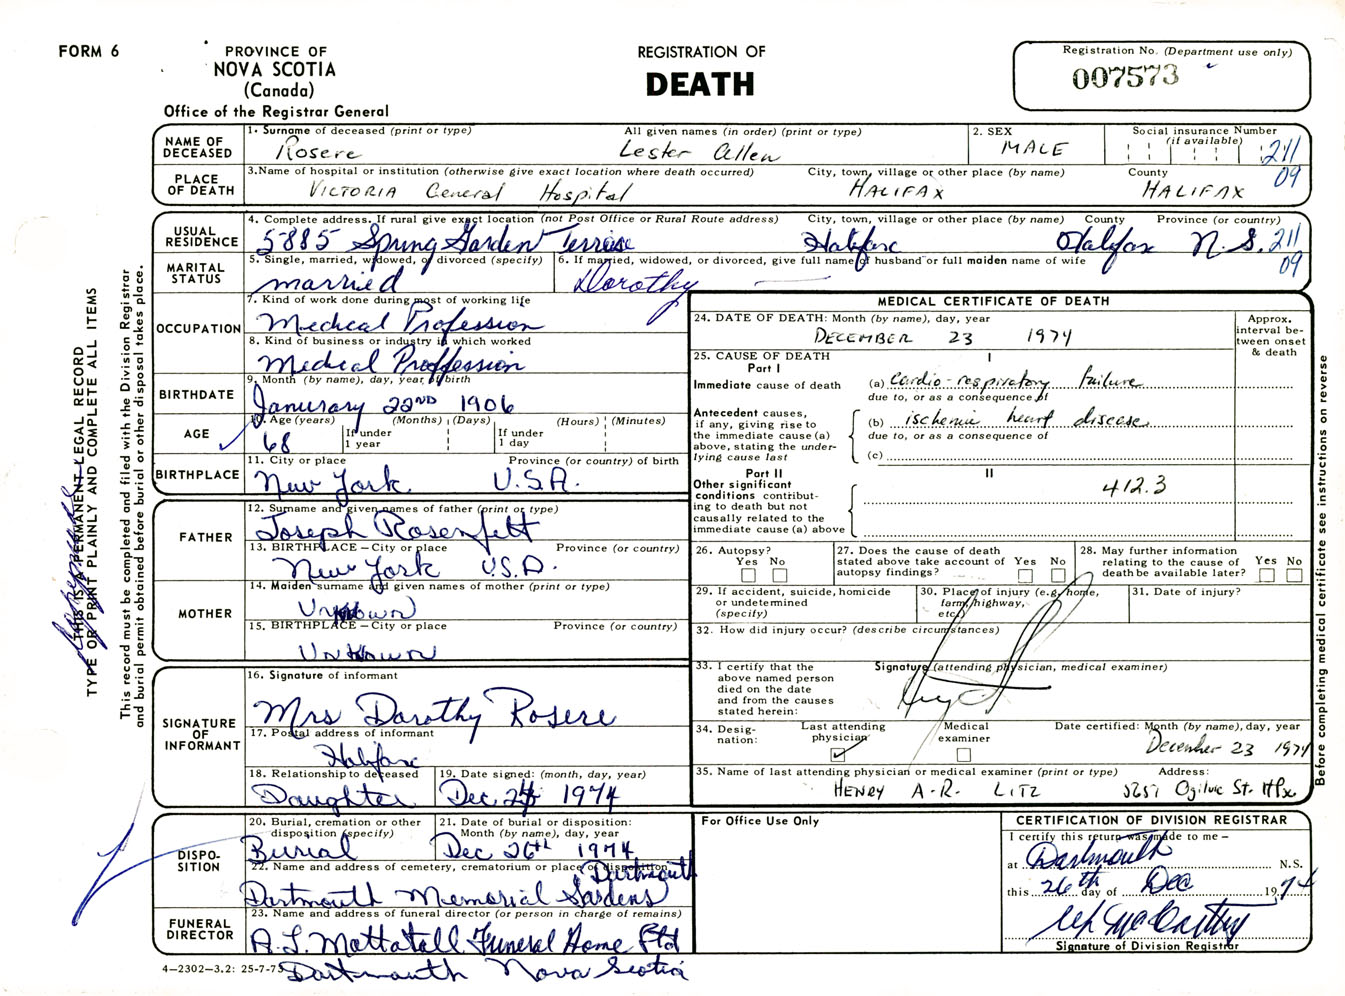 FORM 6
PROVINCE OF
NOVA SCOTIA
(Canada)
Office of the Registrar General
REGISTRATION OF
DEATH
Registration No. (Department use only)
007573
NAME OF DECEASED
1. Surname of deceased (print or type) All given names (in order) (print or type)
Rosere Lester Allen
2. SEX
MALE
Social insurance Number
(if available)
211
09
PLACE OF DEATH
3. Name of hospital or institution (otherwise give exact location where death occurred) City, town, village or other place (by name) County
VICTORIA General Hospital HALIFAX HALIFAX
USUAL RESIDENCE
4. Complete address. If rural give exact location (not Post Office or Rural Route address) City, town, village or other place (by name) County Province (or country)
5885 Spring Garden Terrise Halifax Halifax N.S. 211
09
MARITAL STATUS
5. Single, married, widowed, or divorced (specify)
married
6. If married, widowed, or divorced, give full name of husband or full maiden name of wife
Dorothy
OCCUPATION
7. Kind of work done during most of working life
Medical Profession
8. Kind of business or industry in which worked
Medical Proffession
BIRTHDATE
9. Month (by name), day, year of birth
Janurary 22ND 1906
AGE
10. Age (years) (Months) (Days) (Hours) (Minutes)
68 If under 1 year If under 1 day
BIRTHPLACE
11. City or place Province (or country) of birth
New York. U.S.A.
FATHER
12. Surname and given names of father (print or type)
Joseph Rosenfelt
13. BIRTHPLACE – City or place Province (or country)
New York U.S.A.
MOTHER
14. Maiden surname and given names of mother (print or type)
Unknown
15. BIRTHPLACE – City or place Province (or country)
Unknown
SIGNATURE OF INFORMANT
16. Signature of informant
Mrs Dorothy Rosere
17. Postal address of informant
Halifax
18. Relationship to deceased
Daughter
19. Date signed: (month, day, year)
Dec 1974
DISPO-
SITION
20. Burial, cremation or other
disposition (specify)
Burial
21. Date of burial or disposition:
Month (by name), day, year
Dec 26th 1974
22. Name and address of cemetery, crematorium or place of disposition
Dartmouth
Dartmouth Memorial Gardens
FUNERAL DIRECTOR
23. Name and address of funeral director (or person in charge of remains)
A.L. Mattatall Funeral Home Ltd
Dartmouth Nova Scotia
4–2302–3.2: 25-7-73
MEDICAL CERTIFICATE OF DEATH
24. DATE OF DEATH: Month (by name), day, year
DECEMBER 23 1974
Approx. interval be-
tween onset & death
25. CAUSE OF DEATH
Part I I
Immediate cause of death (a) cardio-respiratory failure
due to, or as a consequence of
Antecedent causes, if any, giving rise to the immediate cause (a) above, stating the under-
lying cause last
(b) ischemic heart disease
due to, or as a consequence of
(c)
Part II II
Other significant conditions contribut-
ing to death but not causally related to the immediate cause (a) above
412.3
26. Autopsy?
Yes No
27. Does the cause of death stated above take account of autopsy findings? Yes No
28. May further information relating to the cause of death be available later? Yes No
29. If accident, suicide, homicide or undetermined (specify)
30. Place of injury (e.g. home, farm, highway, etc.)
31. Date of injury?
32. How did injury occur? (describe circumstances)
33. I certify that the above named person died on the date and from the causes stated herein:
Signature (attending physician, medical examiner)
34. Desig-
nation:
Last attending physician
Medical examiner
Date certified: Month (by name), day, year
December 23 1974
35. Name of last attending physician or medical examiner (print or type) Address:
HENRY A.R. LITZ 5657 Ogilvie St. Hfx
For Office Use Only
CERTIFICATION OF DIVISION REGISTRAR
I certify this return was made to me –
at Dartmouth N.S.
this 26th day of Dec 1974
Signature of Division Registrar
THIS IS A PERMANENT LEGAL RECORD
TYPE OR PRINT PLAINLY AND COMPLETE ALL ITEMS
This record must be completed and filed with the Division Registrar
and burial permit obtained before burial or other disposal takes place.
Before completing medical certificate see instructions on reverse